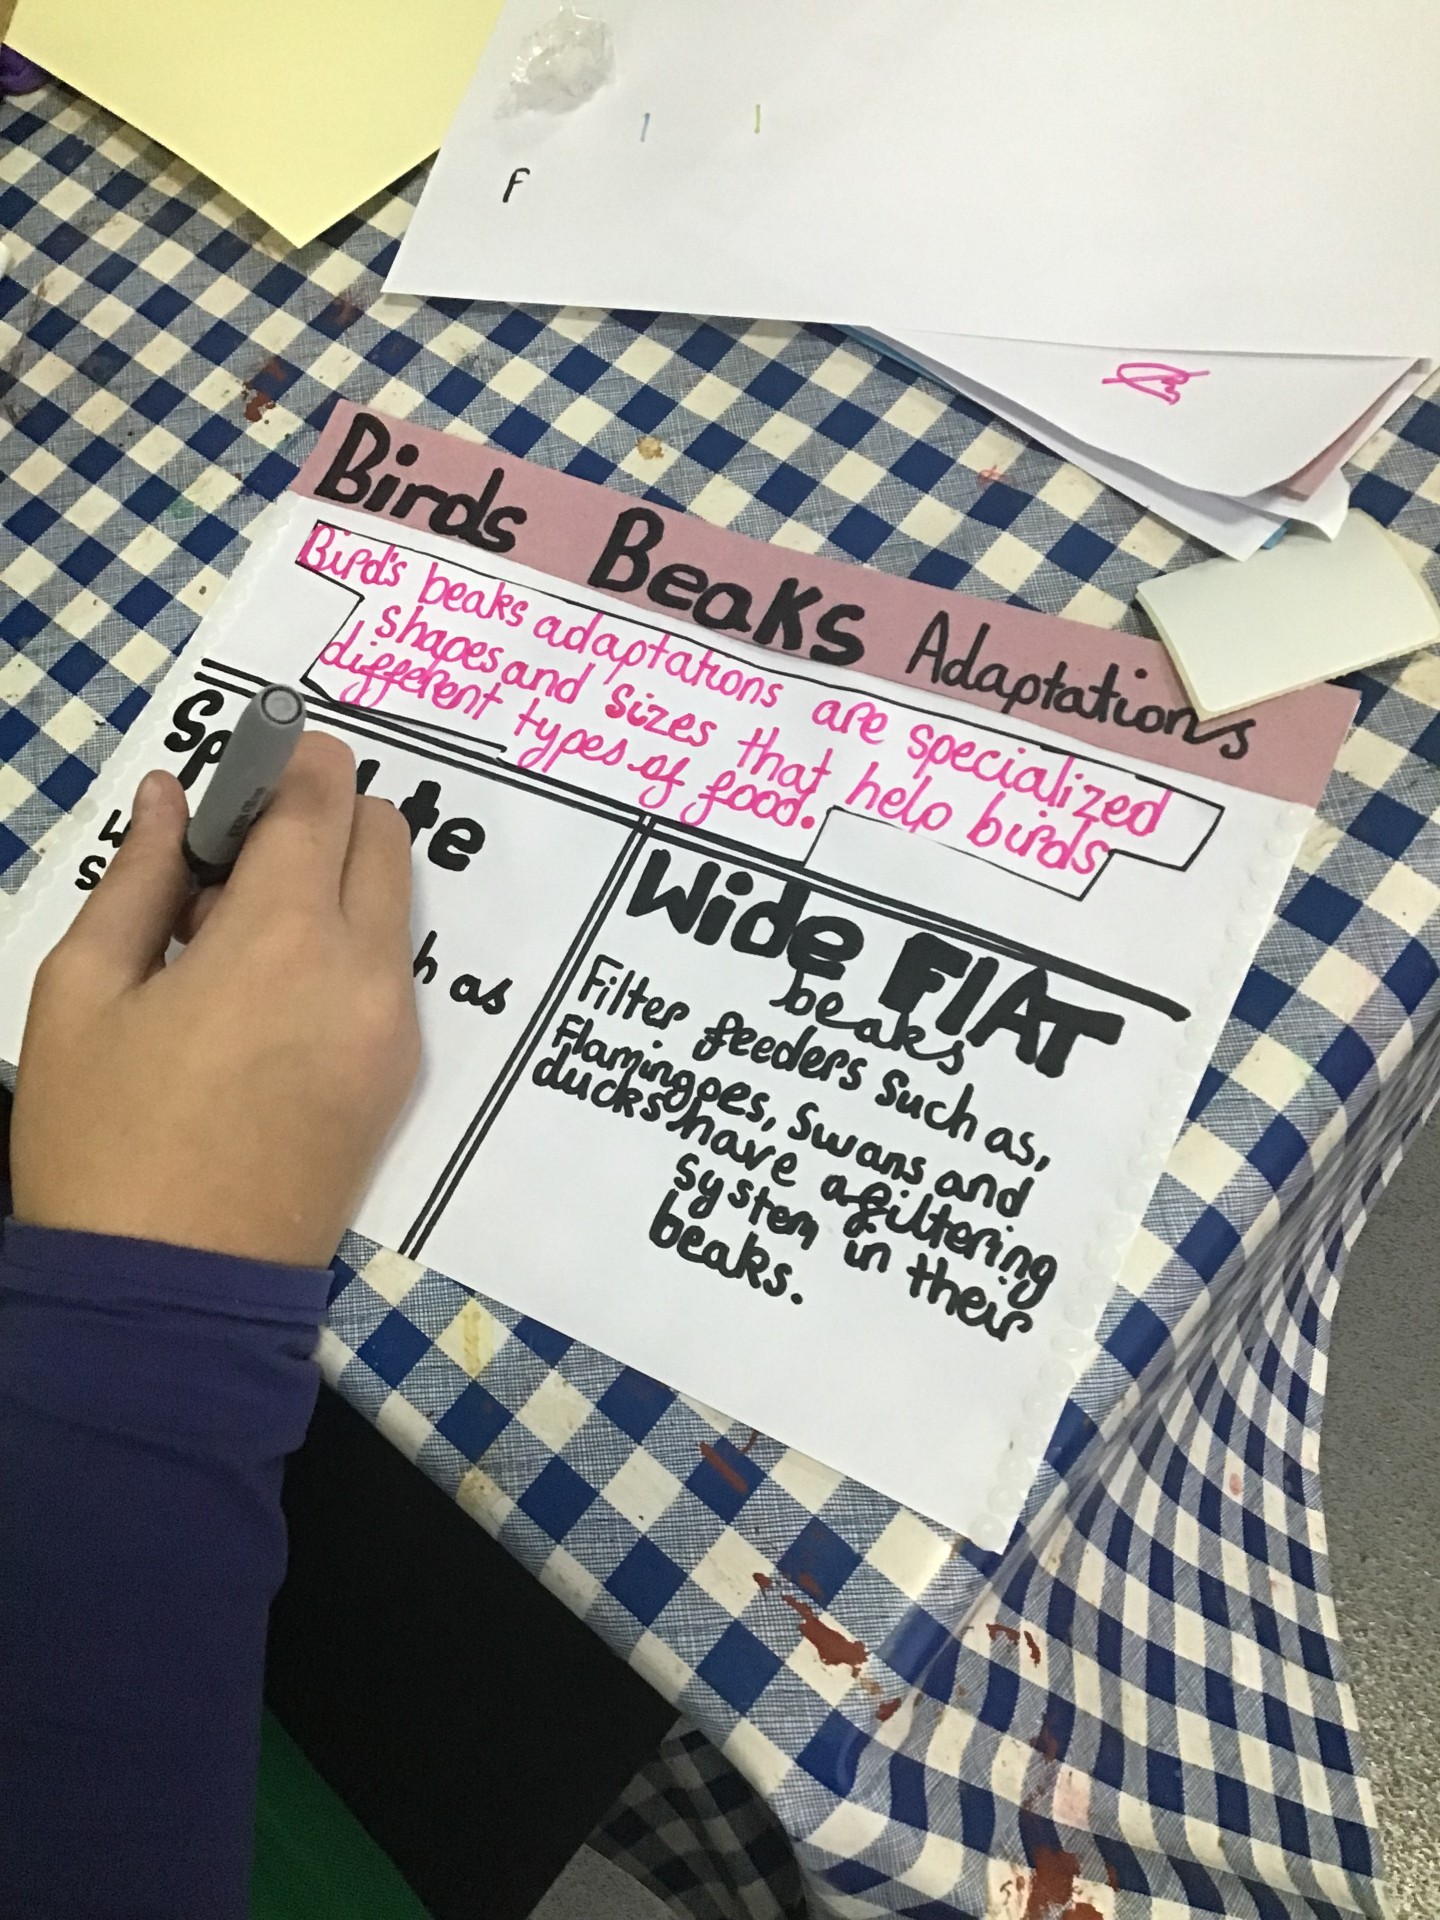 F
Birds Beaks Adaptations
Bird's beaks adaptations are specialized
shapes and sizes that help birds
different types of food.
Wide FlAT
beaks
Filter feeders such as,
Flamingoes, swans and
ducks have a filtering
system in their
beaks.
as